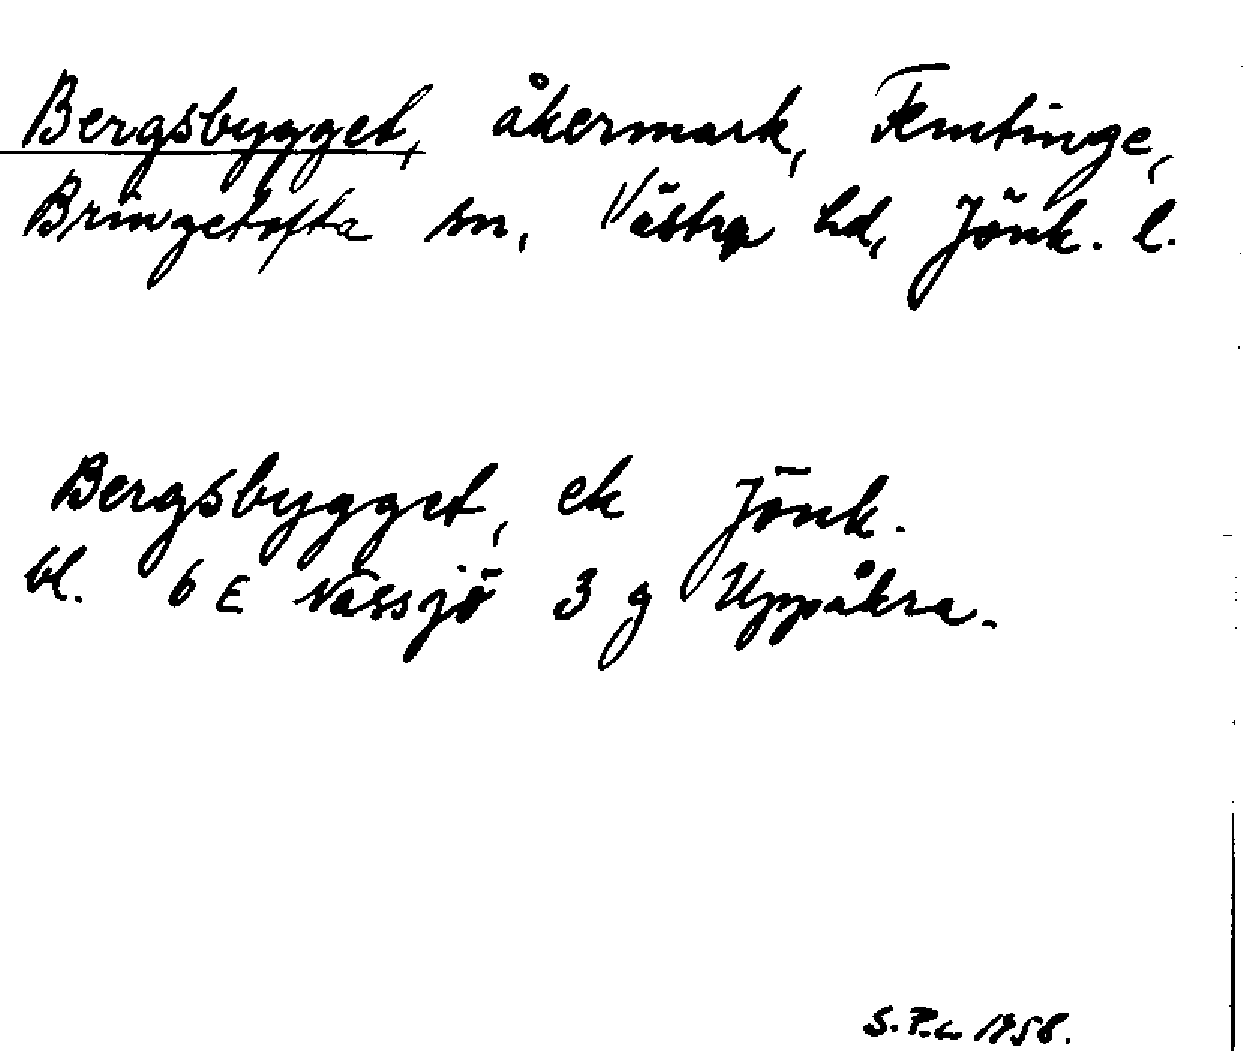 Bergsbygget, åkermark, Femtinge,
Bringetofta sn, Västra hd, Jönk. l.
Bergsbygget, ek Jönk.
bl. 6 E Nässjö 3 g Uppåkra.
1958.